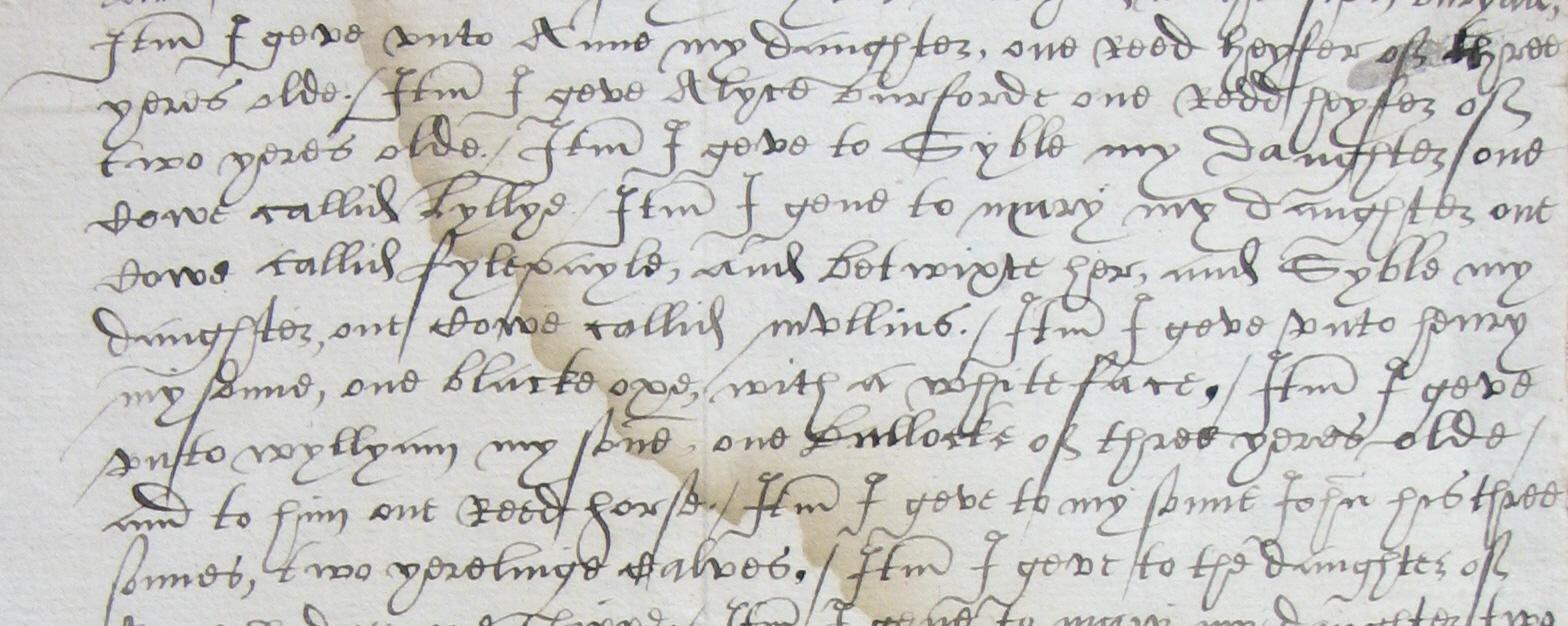 Itm I geve vnto Anne my daughter, one Reed heyfer of three
yeres olde./ Itm I geve Alyce Burforde one Redd heyfer of
two yeres olde./ Itm I geve to Syble my daughter one
Cowe callid Lyllye./ Itm I geve to mary my daughter one
Cowe callid fylepayle, and betwixte her, and Syble my
daughter, one Cowe callid mvllins./ Itm I geve vnto henry
my sonne, one blacke oxe, with a white face,/ Itm I geve
vnto wyllyam my sone, one Bullocke of three yeres olde/
and to him one Reed horse./ Itm I geve to my sonne John his three
sonnes, two yerelinge Calves./ Itm I geve to the daughter of
Itm I geve to mary my daughter two